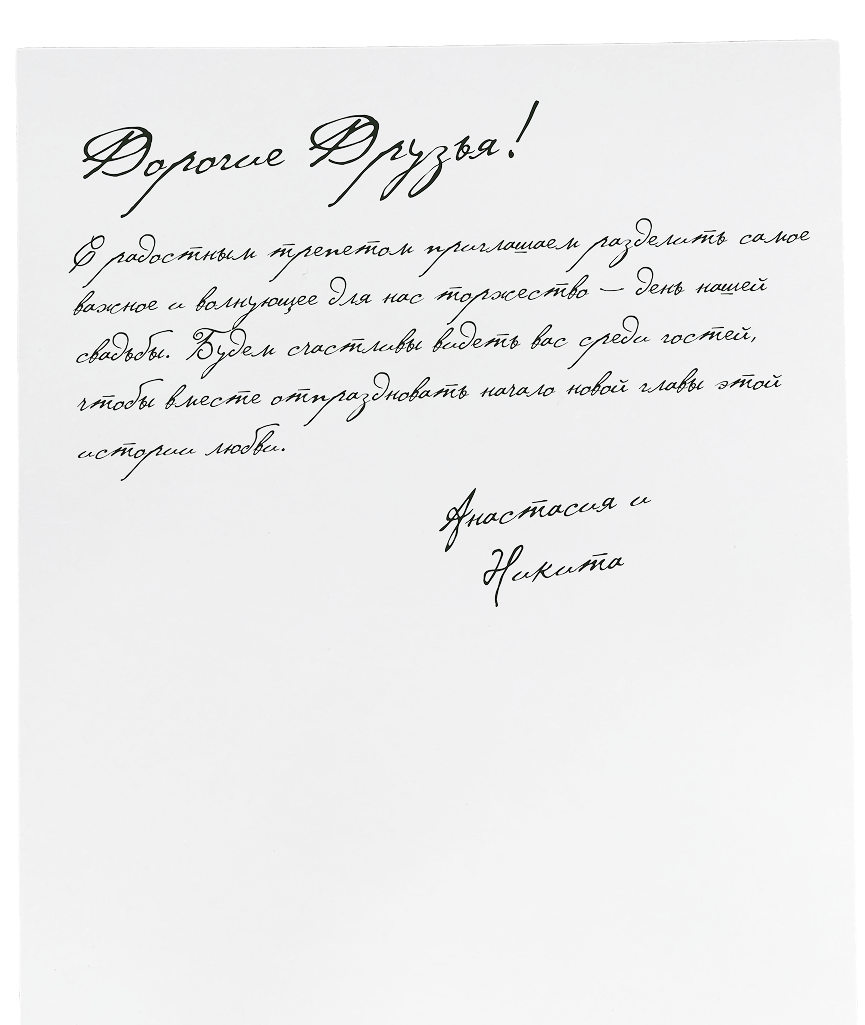 Дорогие Друзья!
С радостным трепетом приглашаем разделить самое
важное и волнующее для нас торжество — день нашей
свадьбы. Будем счастливы видеть вас среди гостей,
чтобы вместе отпраздновать начало новой главы этой
истории любви.
Анастасия и
Никита